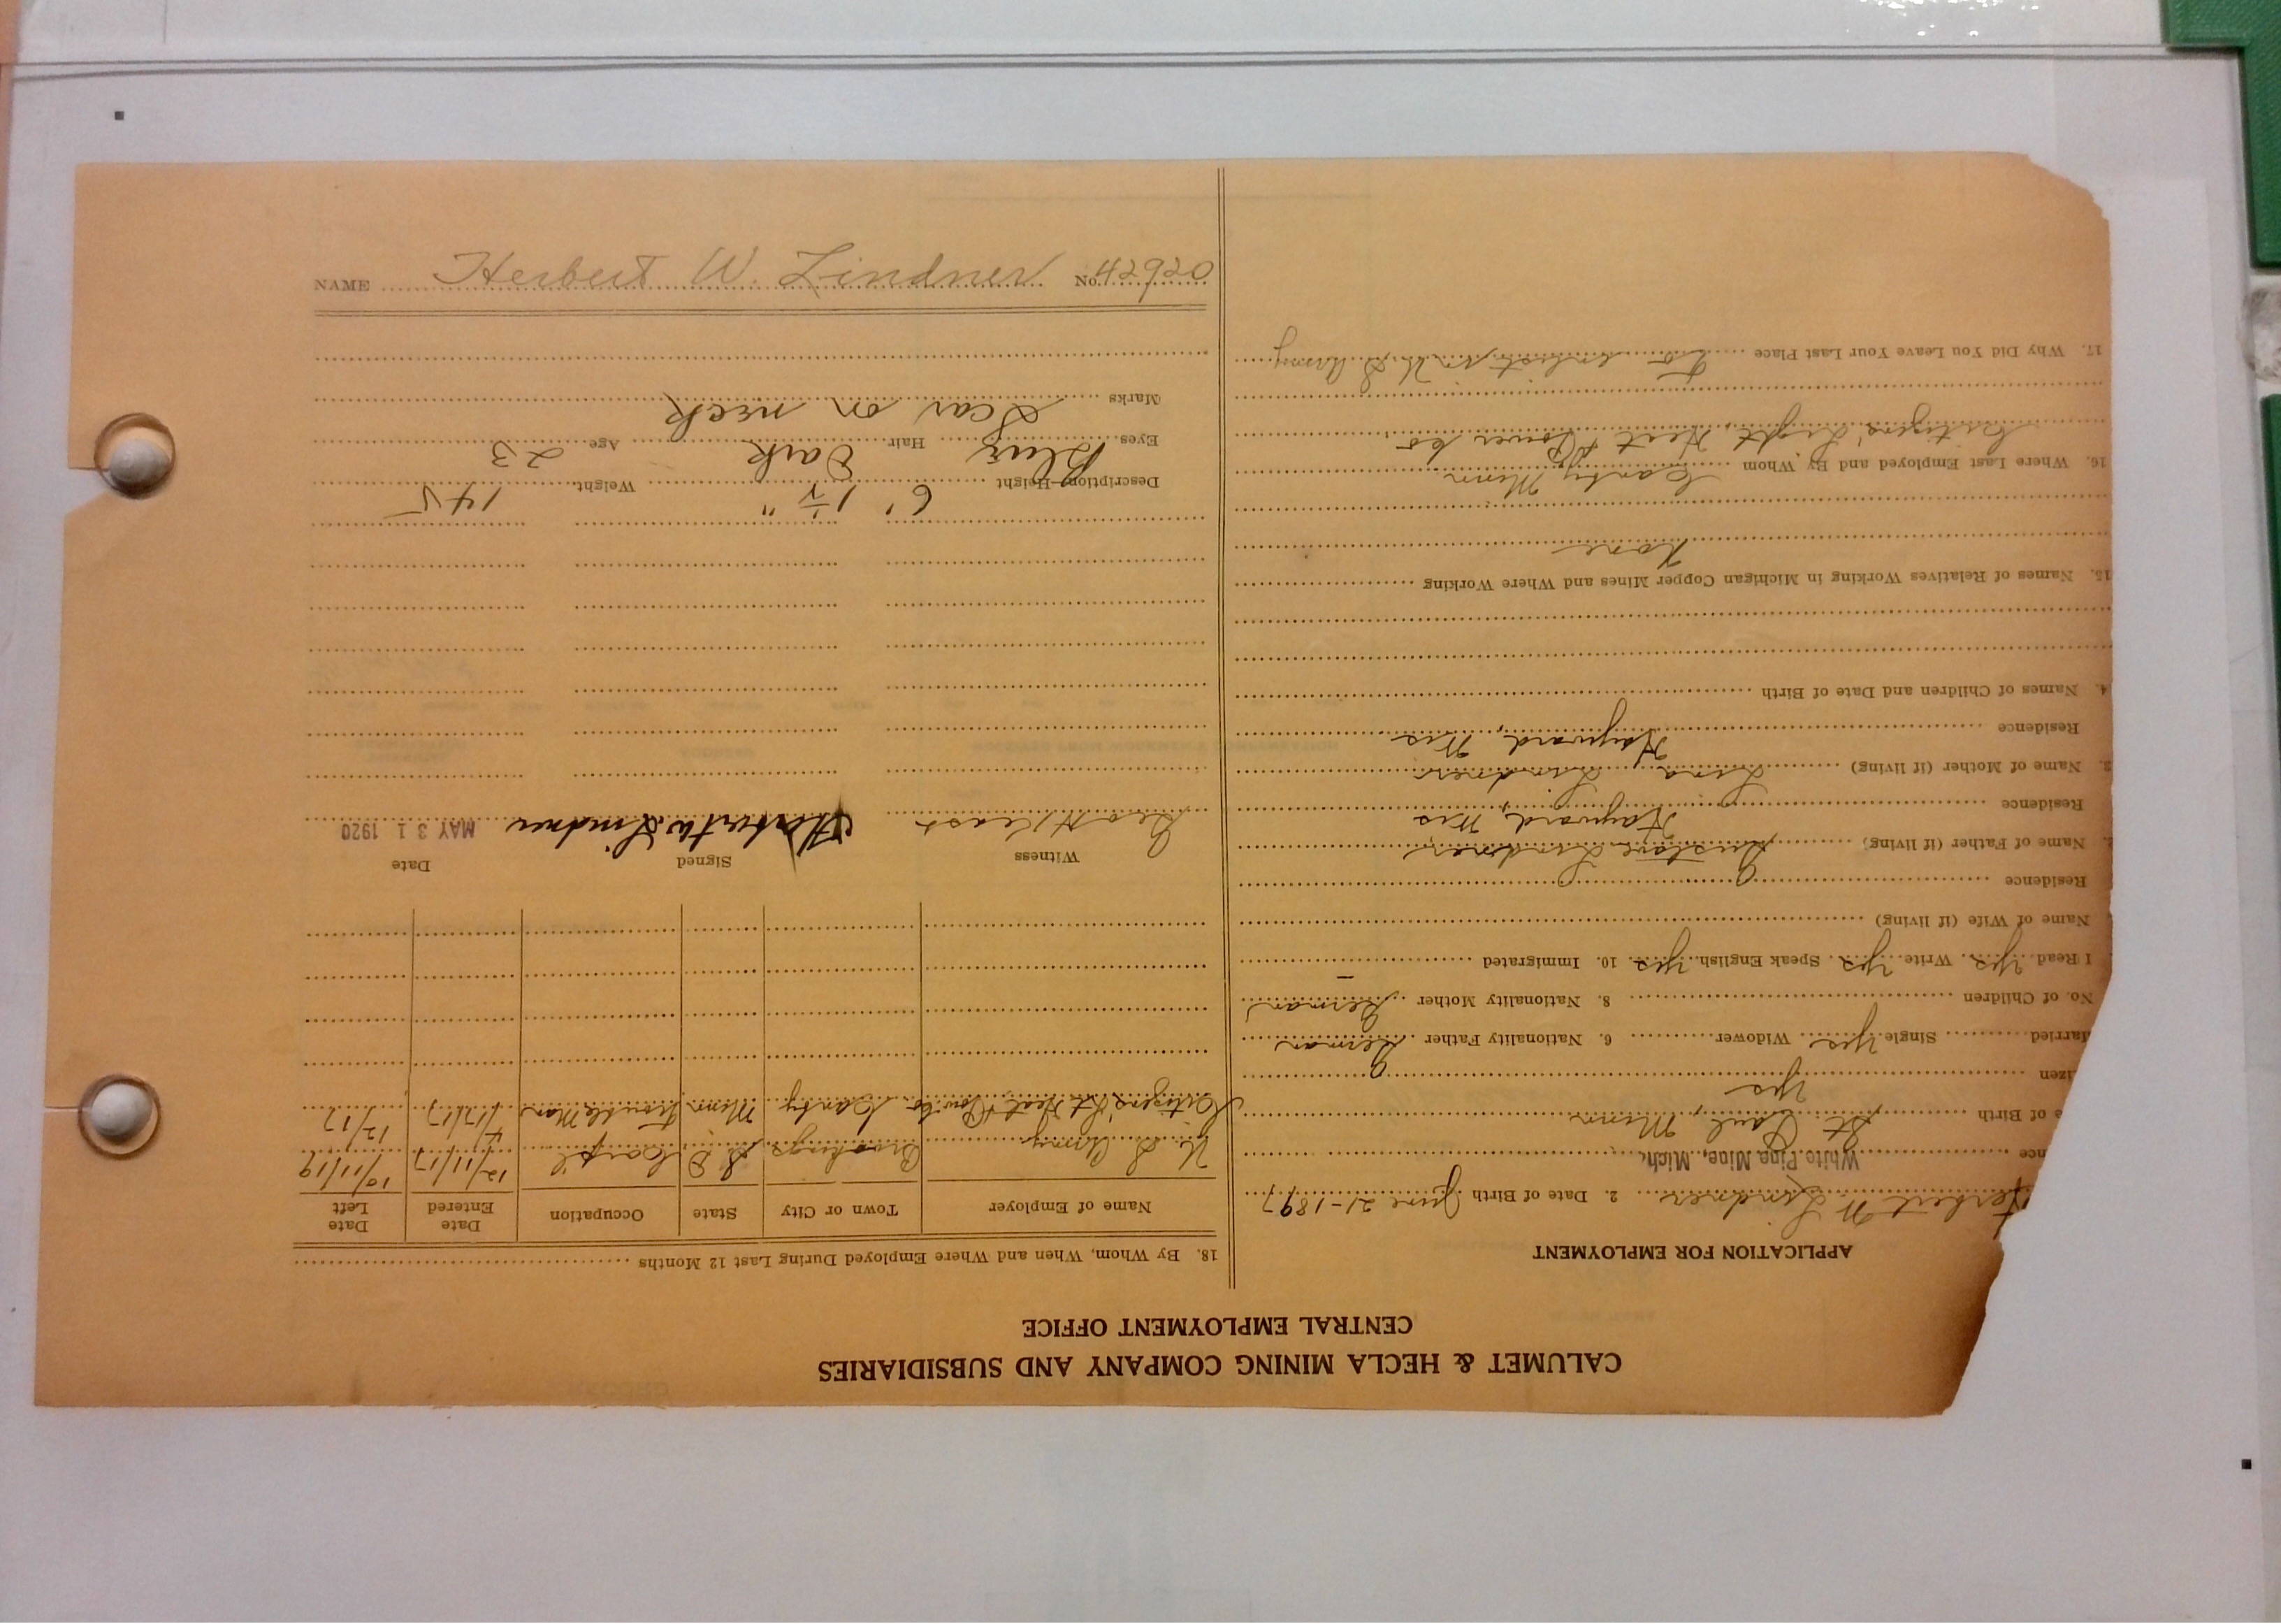 CALUMET & HECLA MINING COMPANY AND SUBSIDIARIES
CENTRAL EMPLOYMENT OFFICE
APPLICATION FOR EMPLOYMENT
Herbert W Lindner 2. Date of Birth June 21-1897
nce White Pine Mine, Mich.
e of Birth St. Paul, Minn
izen Yes
Married Single Yes Widower 6. Nationality Father German
No. of Children 8. Nationality Mother German
I Read Yes Write Yes Speak English Yes 10. Immigrated –
Name of Wife (if living)
Residence
Name of Father (if living) Gustave Lindner
Residence Hayward, Wis
3. Name of Mother (if living) Lina Lindner
Residence Hayward, Wis
4. Names of Children and Date of Birth
15. Names of Relatives Working in Michigan Copper Mines and Where Working
None
16. Where Last Employed and By Whom Canby Minn
Citizens Light Heat & Power Co
17. Why Did You Leave Your Last Place To enlist in U. S. Army
18. By Whom, When and Where Employed During Last 12 Months
Name of Employer Town or City State Occupation Date Entered Date Left
U. S. Army Brookings S. D. 12/11/17 10/11/19
Citizens Lt Heat & Pow Co Canby Minn Trouble Man 12/17
Witness Signed Date
Geo H Herbert W Lindner MAY 31 1920
Description—Height 6' 1½" Weight 145
Eyes Blue Hair Dark Age 23
Marks Scar on neck
NAME Herbert W. Lindner No. 42920